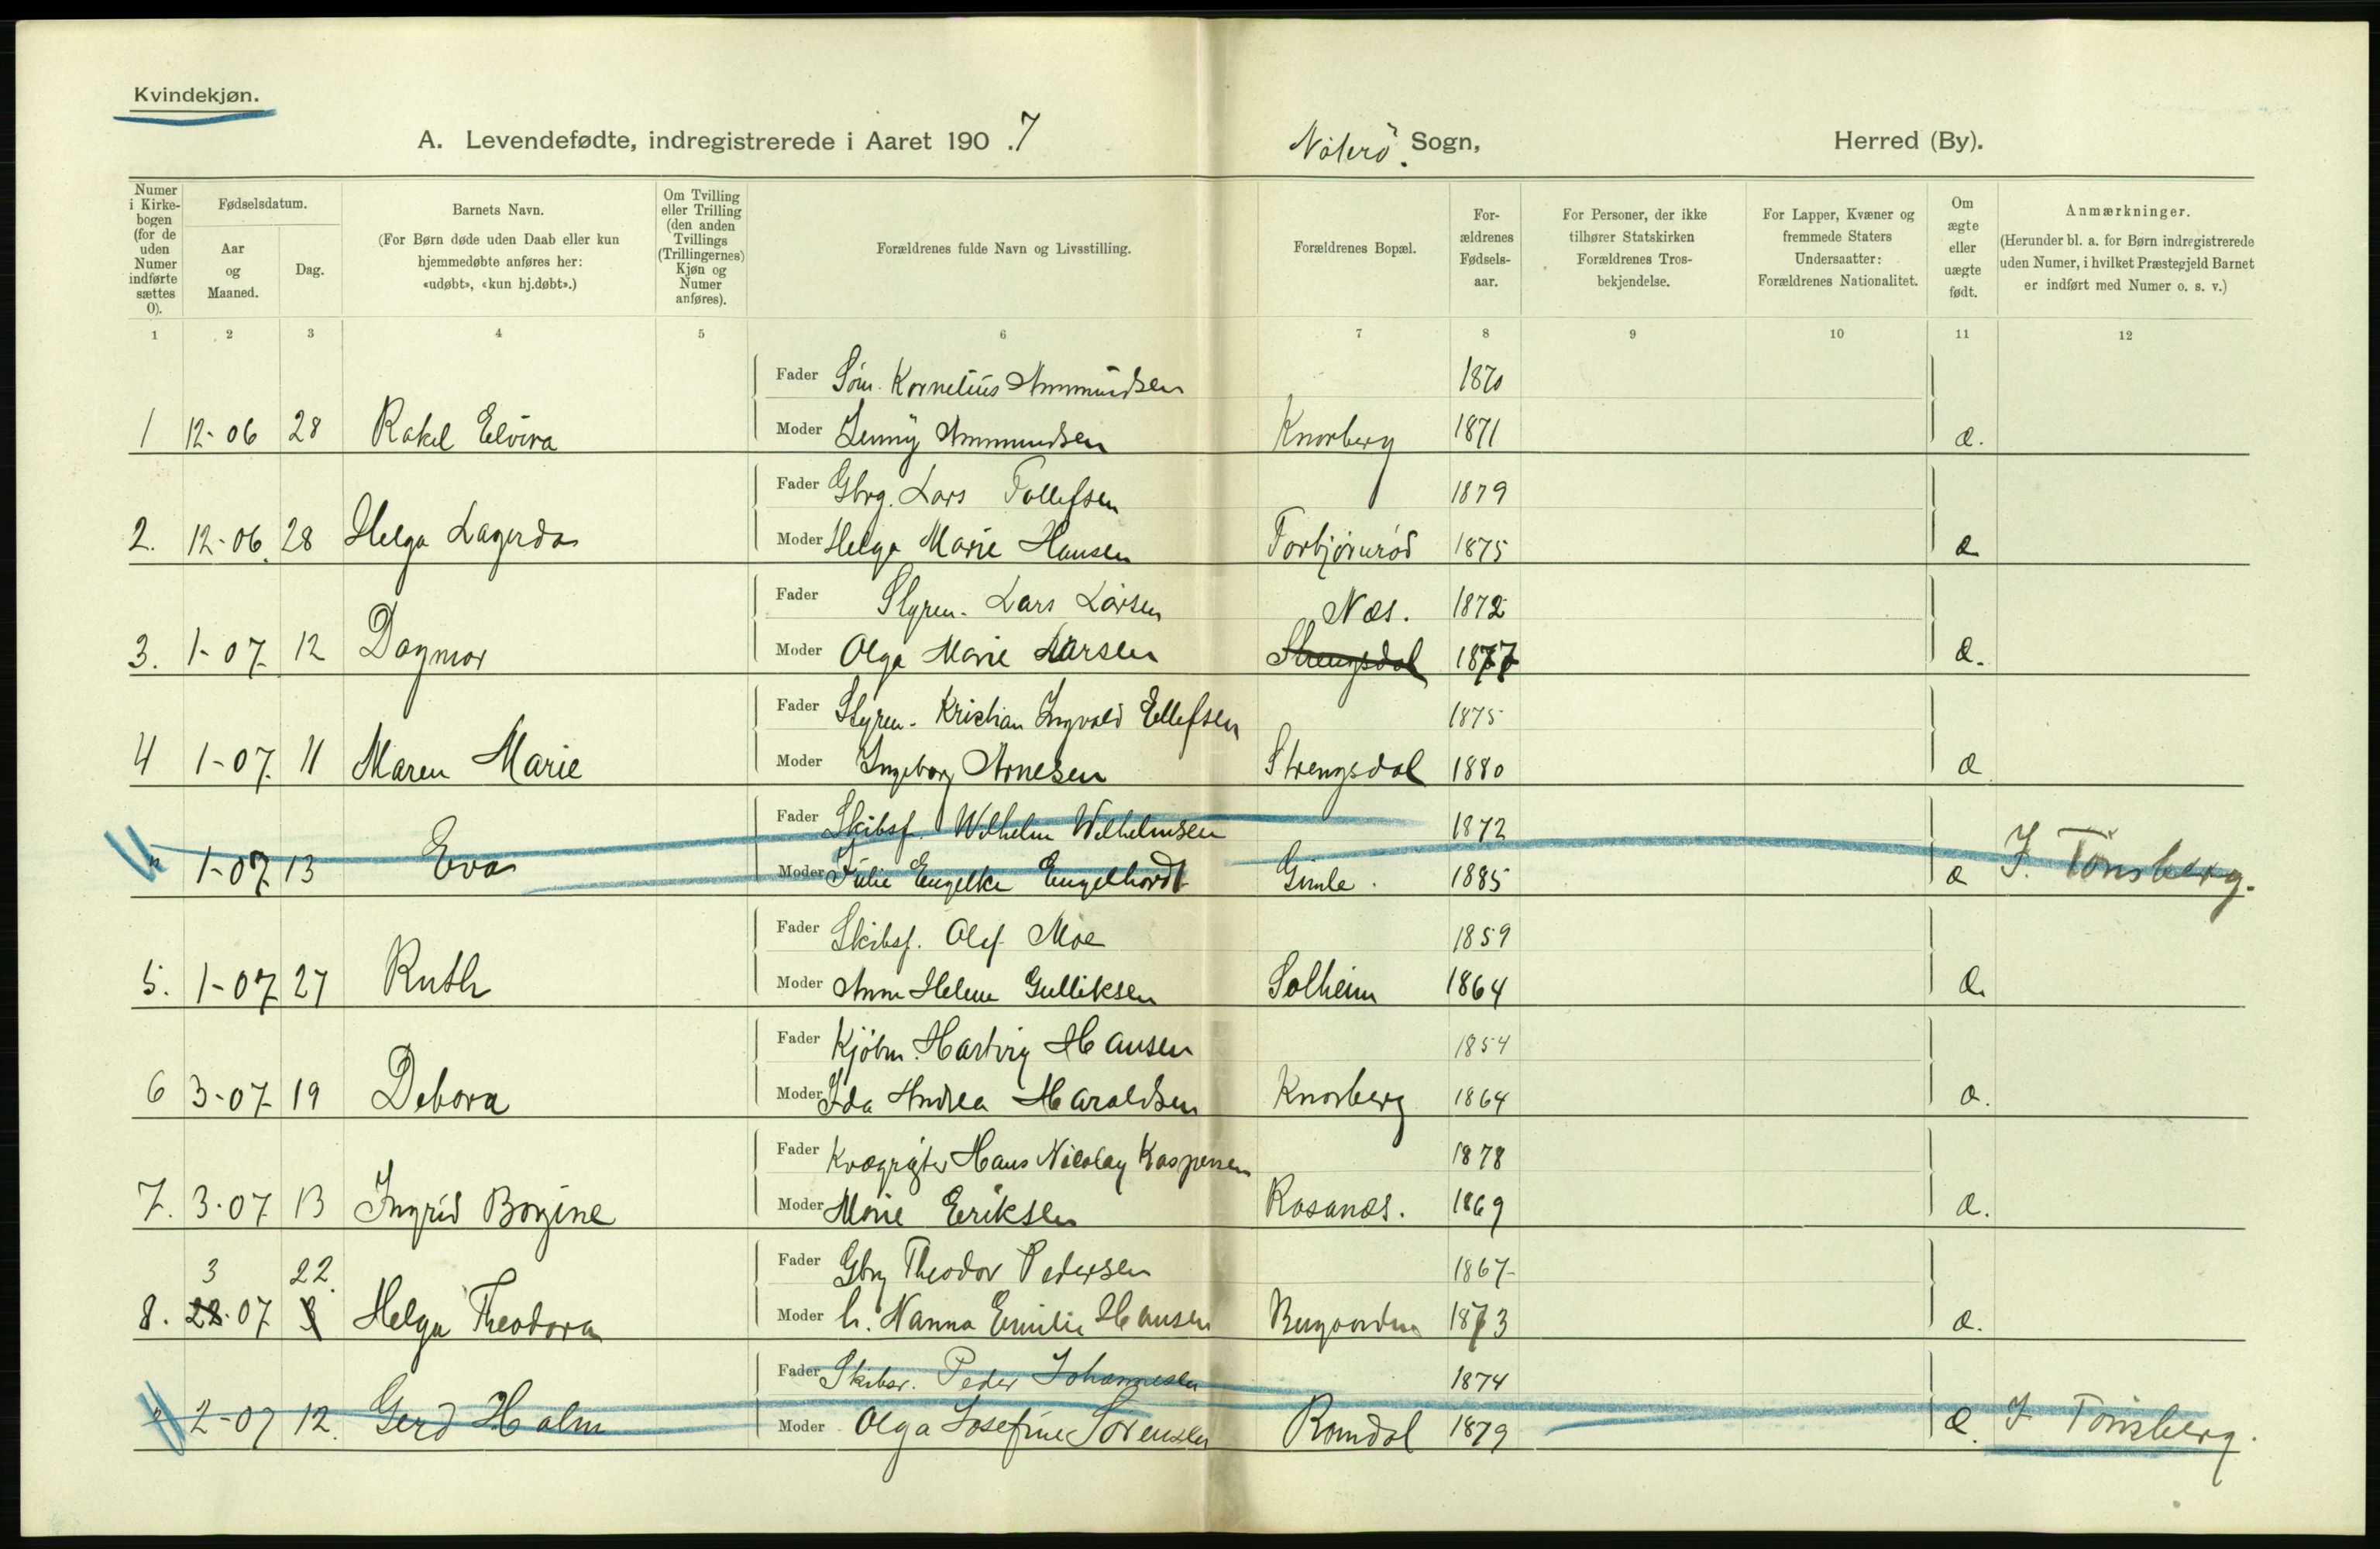 Kvindekjøn.
A. Levendefødte, indregistrerede i Aaret 190.7
Nøterø. Sogn,
Herred (By).
Numer i Kirkebogen (for de uden Numer indførte sættes 0).
Fødselsdatum.
Aar og Maaned.
Dag.
Barnets Navn.
(For Børn døde uden Daab eller kun hjemmedøbte anføres her: «udøbt», «kun hj.døbt».)
Om Tvilling eller Trilling (den anden Tvillings (Trillingernes) Kjøn og Numer anføres).
Forældrenes fulde Navn og Livsstilling.
Forældrenes Bopæl.
Forældrenes Fødselsaar.
For Personer, der ikke tilhører Statskirken Forældrenes Trosbekjendelse.
For Lapper, Kvæner og fremmede Staters Undersaatter: Forældrenes Nationalitet.
Om ægte eller uægte født.
Anmærkninger.
(Herunder bl. a. for Børn indregistrerede uden Numer, i hvilket Præstegjeld Barnet er indført med Numer o. s. v.)
1 2 3 4 5 6 7 8 9 10 11 12
Fader Søm. Kornelius Ammundsen 1870
1 12-06 28 Rakel Elvira Moder Jenny Ammundsen Knorberg 1871 æ.
Fader Gbrg. Lars Tollefsen 1879
2. 12-06. 28 Helga Lagerda Moder Helga Marie Hansen Torbjørnrød 1875 æ
Fader Styrm. Lars Larsen Næs. 1872
3. 1-07 12 Dagmar Moder Olga Marie Larsen Strengsdal 1877 æ.
Fader Styrm. Kristian Ingvald Ellefsen 1875
4 1-07. 11 Maren Marie Moder Ingeborg Arnesen Strengsdal 1880 æ
Fader Skibsf. Wilhelm Wilhelmsen 1872
" 1-07 13 Eva Moder Julie Engelke Engelhardt Gimle. 1885 æ I. Tønsberg.
Fader Skibsf. Olaf Moe 1859
5. 1-07 27 Ruth Moder Anna Helene Gulliksen Solheim 1864 æ.
Fader Kjøbm. Hartvig Hansen 1854
6 3-07 19 Debora Moder Ida Andrea Haraldsen Knorberg 1864 æ.
Fader Kvægrøgter Hans Nicolay Kaspersen 1878
7. 3-07 13 Ingrid Borgine Moder Marie Eriksen Rosanes. 1869 æ.
3 22. Fader Gbrg Theodor Pedersen 1867
8. 22.07 3 Helga Theodora Moder h. Nanna Emilie Hansen 1873 æ.
Fader Skibsr. Peder Johannesen 1874
" 2-07 12. Gerd Holm Moder Olga Josefine Sørensen Ramdal 1879 æ. I Tønsberg.